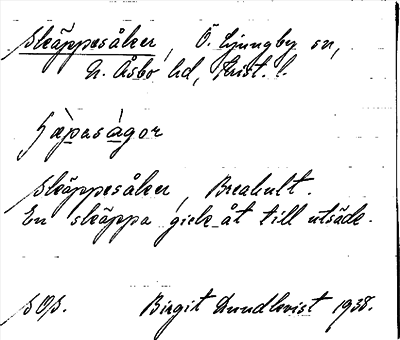 Skäppesåker, Ö. Ljungby sn,
N. Åsbo hd, Krist. l.
Skäppesåker, Breahult.
En skäppa gick åt till utsäde.
SOS. Birgit Lundkvist 1938.